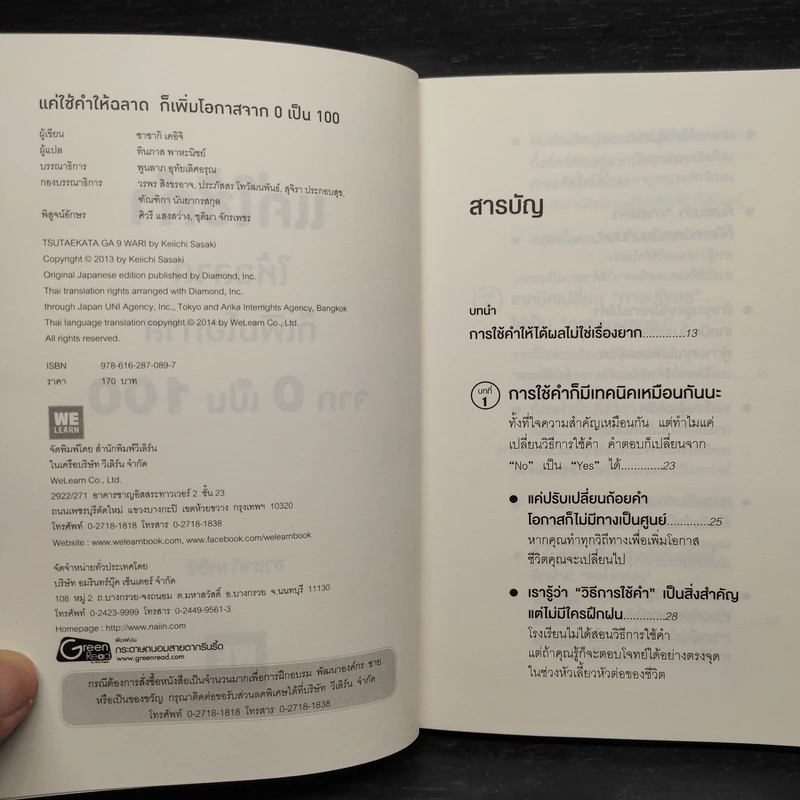 แค่ใช้คำให้ฉลาด ก็เพิ่มโอกาสจาก 0 เป็น 100
ผู้เขียน ซาซากิ เคอิจิ
ผู้แปล ทินภาส พาหะนิชย์
บรรณาธิการ พูนลาภ อุทัยเลิศอรุณ
กองบรรณาธิการ วรพร สิงขรอาจ, ประภัสสร โทวัฒนพันธ์, สุจิรา ประกอบสุข,
ทัณฑิกา นันยากรสกุล
พิสูจน์อักษร ศิวรี แสงสว่าง, ชุติมา จักรเพชร
TSUTAEKATA GA 9 WARI by Keiichi Sasaki
Copyright © 2013 by Keiichi Sasaki
Original Japanese edition published by Diamond, Inc.
Thai translation rights arranged with Diamond, Inc.
through Japan UNI Agency, Inc., Tokyo and Arika Interrights Agency, Bangkok
Thai language translation copyright © 2014 by WeLearn Co., Ltd.
All rights reserved.
ISBN 978-616-287-089-7
ราคา 170 บาท
WE
LEARN
จัดพิมพ์โดย สำนักพิมพ์วีเลิร์น
ในเครือบริษัท วีเลิร์น จำกัด
WeLearn Co., Ltd.
2922/271 อาคารชาญอิสสระทาวเวอร์ 2 ชั้น 23
ถนนเพชรบุรีตัดใหม่ แขวงบางกะปิ เขตห้วยขวาง กรุงเทพฯ 10320
โทรศัพท์ 0-2718-1818 โทรสาร 0-2718-1838
Website : www.welearnbook.com, www.facebook.com/welearnbook
จัดจำหน่ายทั่วประเทศโดย
บริษัท อมรินทร์บุ๊ค เซ็นเตอร์ จำกัด
108 หมู่ 2 ถ.บางกรวย-จงถนอม ต.มหาสวัสดิ์ อ.บางกรวย จ.นนทบุรี 11130
โทรศัพท์ 0-2423-9999 โทรสาร 0-2449-9561-3
Homepage : http://www.naiin.com
Green Read
พิมพ์บน
กระดาษถนอมสายตากรีนรี้ด
www.greenread.com
กรณีต้องการสั่งซื้อหนังสือเป็นจำนวนมากเพื่อการฝึกอบรม พัฒนาองค์กร ขาย
หรือเป็นของขวัญ กรุณาติดต่อขอรับส่วนลดพิเศษได้ที่บริษัท วีเลิร์น จำกัด
โทรศัพท์ 0-2718-1818 โทรสาร 0-2718-1838
สารบัญ
บทนำ
การใช้คำให้ได้ผลไม่ใช่เรื่องยาก.............13
บทที่ 1 การใช้คำก็มีเทคนิคเหมือนกันนะ
ทั้งที่ใจความสำคัญเหมือนกัน แต่ทำไมแค่
เปลี่ยนวิธีการใช้คำ คำตอบก็เปลี่ยนจาก
“No” เป็น “Yes” ได้.............23
● แค่ปรับเปลี่ยนถ้อยคำ
โอกาสก็ไม่มีทางเป็นศูนย์.............25
หากคุณทำทุกวิถีทางเพื่อเพิ่มโอกาส
ชีวิตคุณจะเปลี่ยนไป
● เรารู้ว่า “วิธีการใช้คำ” เป็นสิ่งสำคัญ
แต่ไม่มีใครฝึกฝน.............28
โรงเรียนไม่ได้สอนวิธีการใช้คำ
แต่ถ้าคุณรู้ก็จะตอบโจทย์ได้อย่างตรงจุด
ในช่วงหัวเลี้ยวหัวต่อของชีวิต